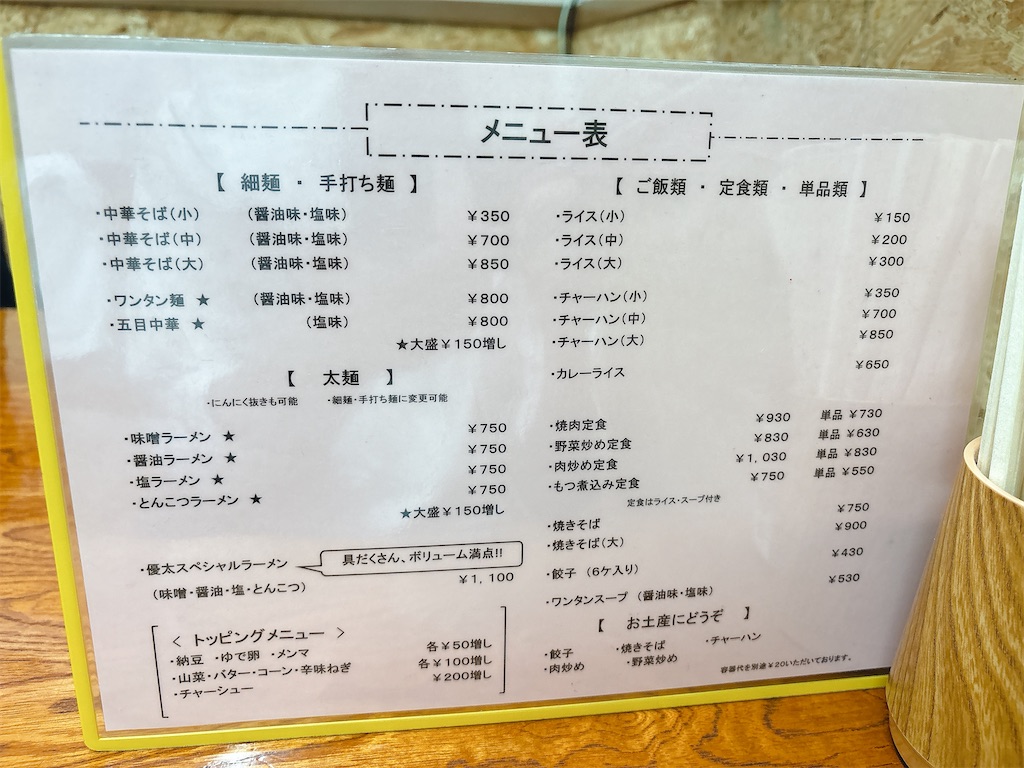 メニュー表
【 細麺 ・ 手打ち麺 】
・中華そば(小) (醤油味・塩味) ￥350
・中華そば(中) (醤油味・塩味) ￥700
・中華そば(大) (醤油味・塩味) ￥850
・ワンタン麺 ★ (醤油味・塩味) ￥800
・五目中華 ★ (塩味) ￥800
★大盛￥150増し
【 太麺 】
・にんにく抜きも可能 ・細麺・手打ち麺に変更可能
・味噌ラーメン ★ ￥750
・醤油ラーメン ★ ￥750
・塩ラーメン ★ ￥750
・とんこつラーメン ★ ￥750
★大盛￥150増し
・優太スペシャルラーメン 具だくさん、ボリューム満点!!
(味噌・醤油・塩・とんこつ) ￥1,100
< トッピングメニュー >
・納豆 ・ゆで卵 ・メンマ 各￥50増し
・山菜・バター・コーン・辛味ねぎ 各￥100増し
・チャーシュー ￥200増し
【 ご飯類 ・ 定食類 ・ 単品類 】
・ライス(小) ￥150
・ライス(中) ￥200
・ライス(大) ￥300
・チャーハン(小) ￥350
・チャーハン(中) ￥700
・チャーハン(大) ￥850
・カレーライス ￥650
・焼肉定食 ￥930 単品 ￥730
・野菜炒め定食 ￥830 単品 ￥630
・肉炒め定食 ￥1,030 単品 ￥830
・もつ煮込み定食 ￥750 単品 ￥550
定食はライス・スープ付き
・焼きそば ￥750
・焼きそば(大) ￥900
・餃子 (6ケ入り) ￥430
・ワンタンスープ (醤油味・塩味) ￥530
【 お土産にどうぞ 】
・餃子 ・焼きそば ・チャーハン
・肉炒め ・野菜炒め
容器代を別途￥20いただいております。